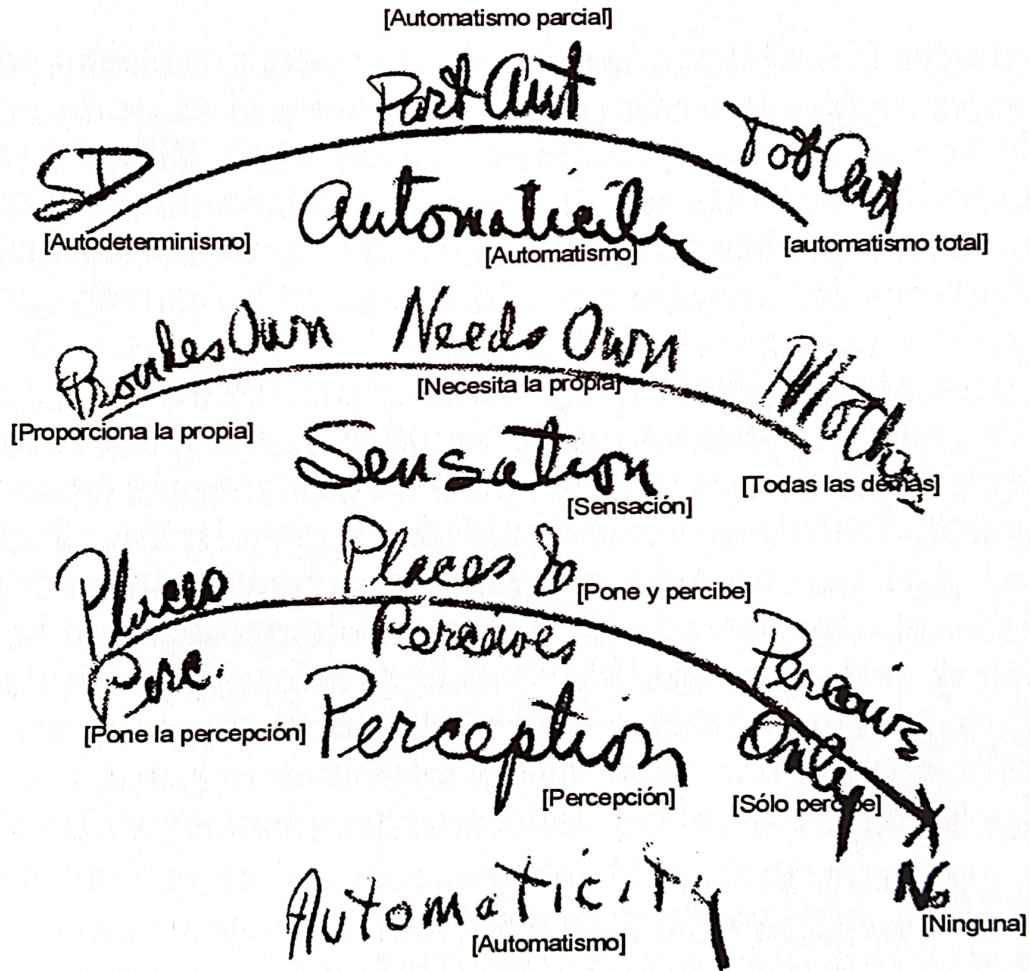 [Automatismo parcial]
Part Aut
SD
Tot Aut
[Autodeterminismo]
Automaticity
[Automatismo]
[automatismo total]
Provides Own
Needs Own
All Others
[Necesita la propia]
[Proporciona la propia]
Sensation
[Sensación]
[Todas las demás]
Places
Perc.
Places &
[Pone y percibe]
Perceives
Perceives
Only
[Pone la percepción]
Perception
[Percepción]
[Sólo percibe]
No
[Ninguna]
Automaticity
[Automatismo]